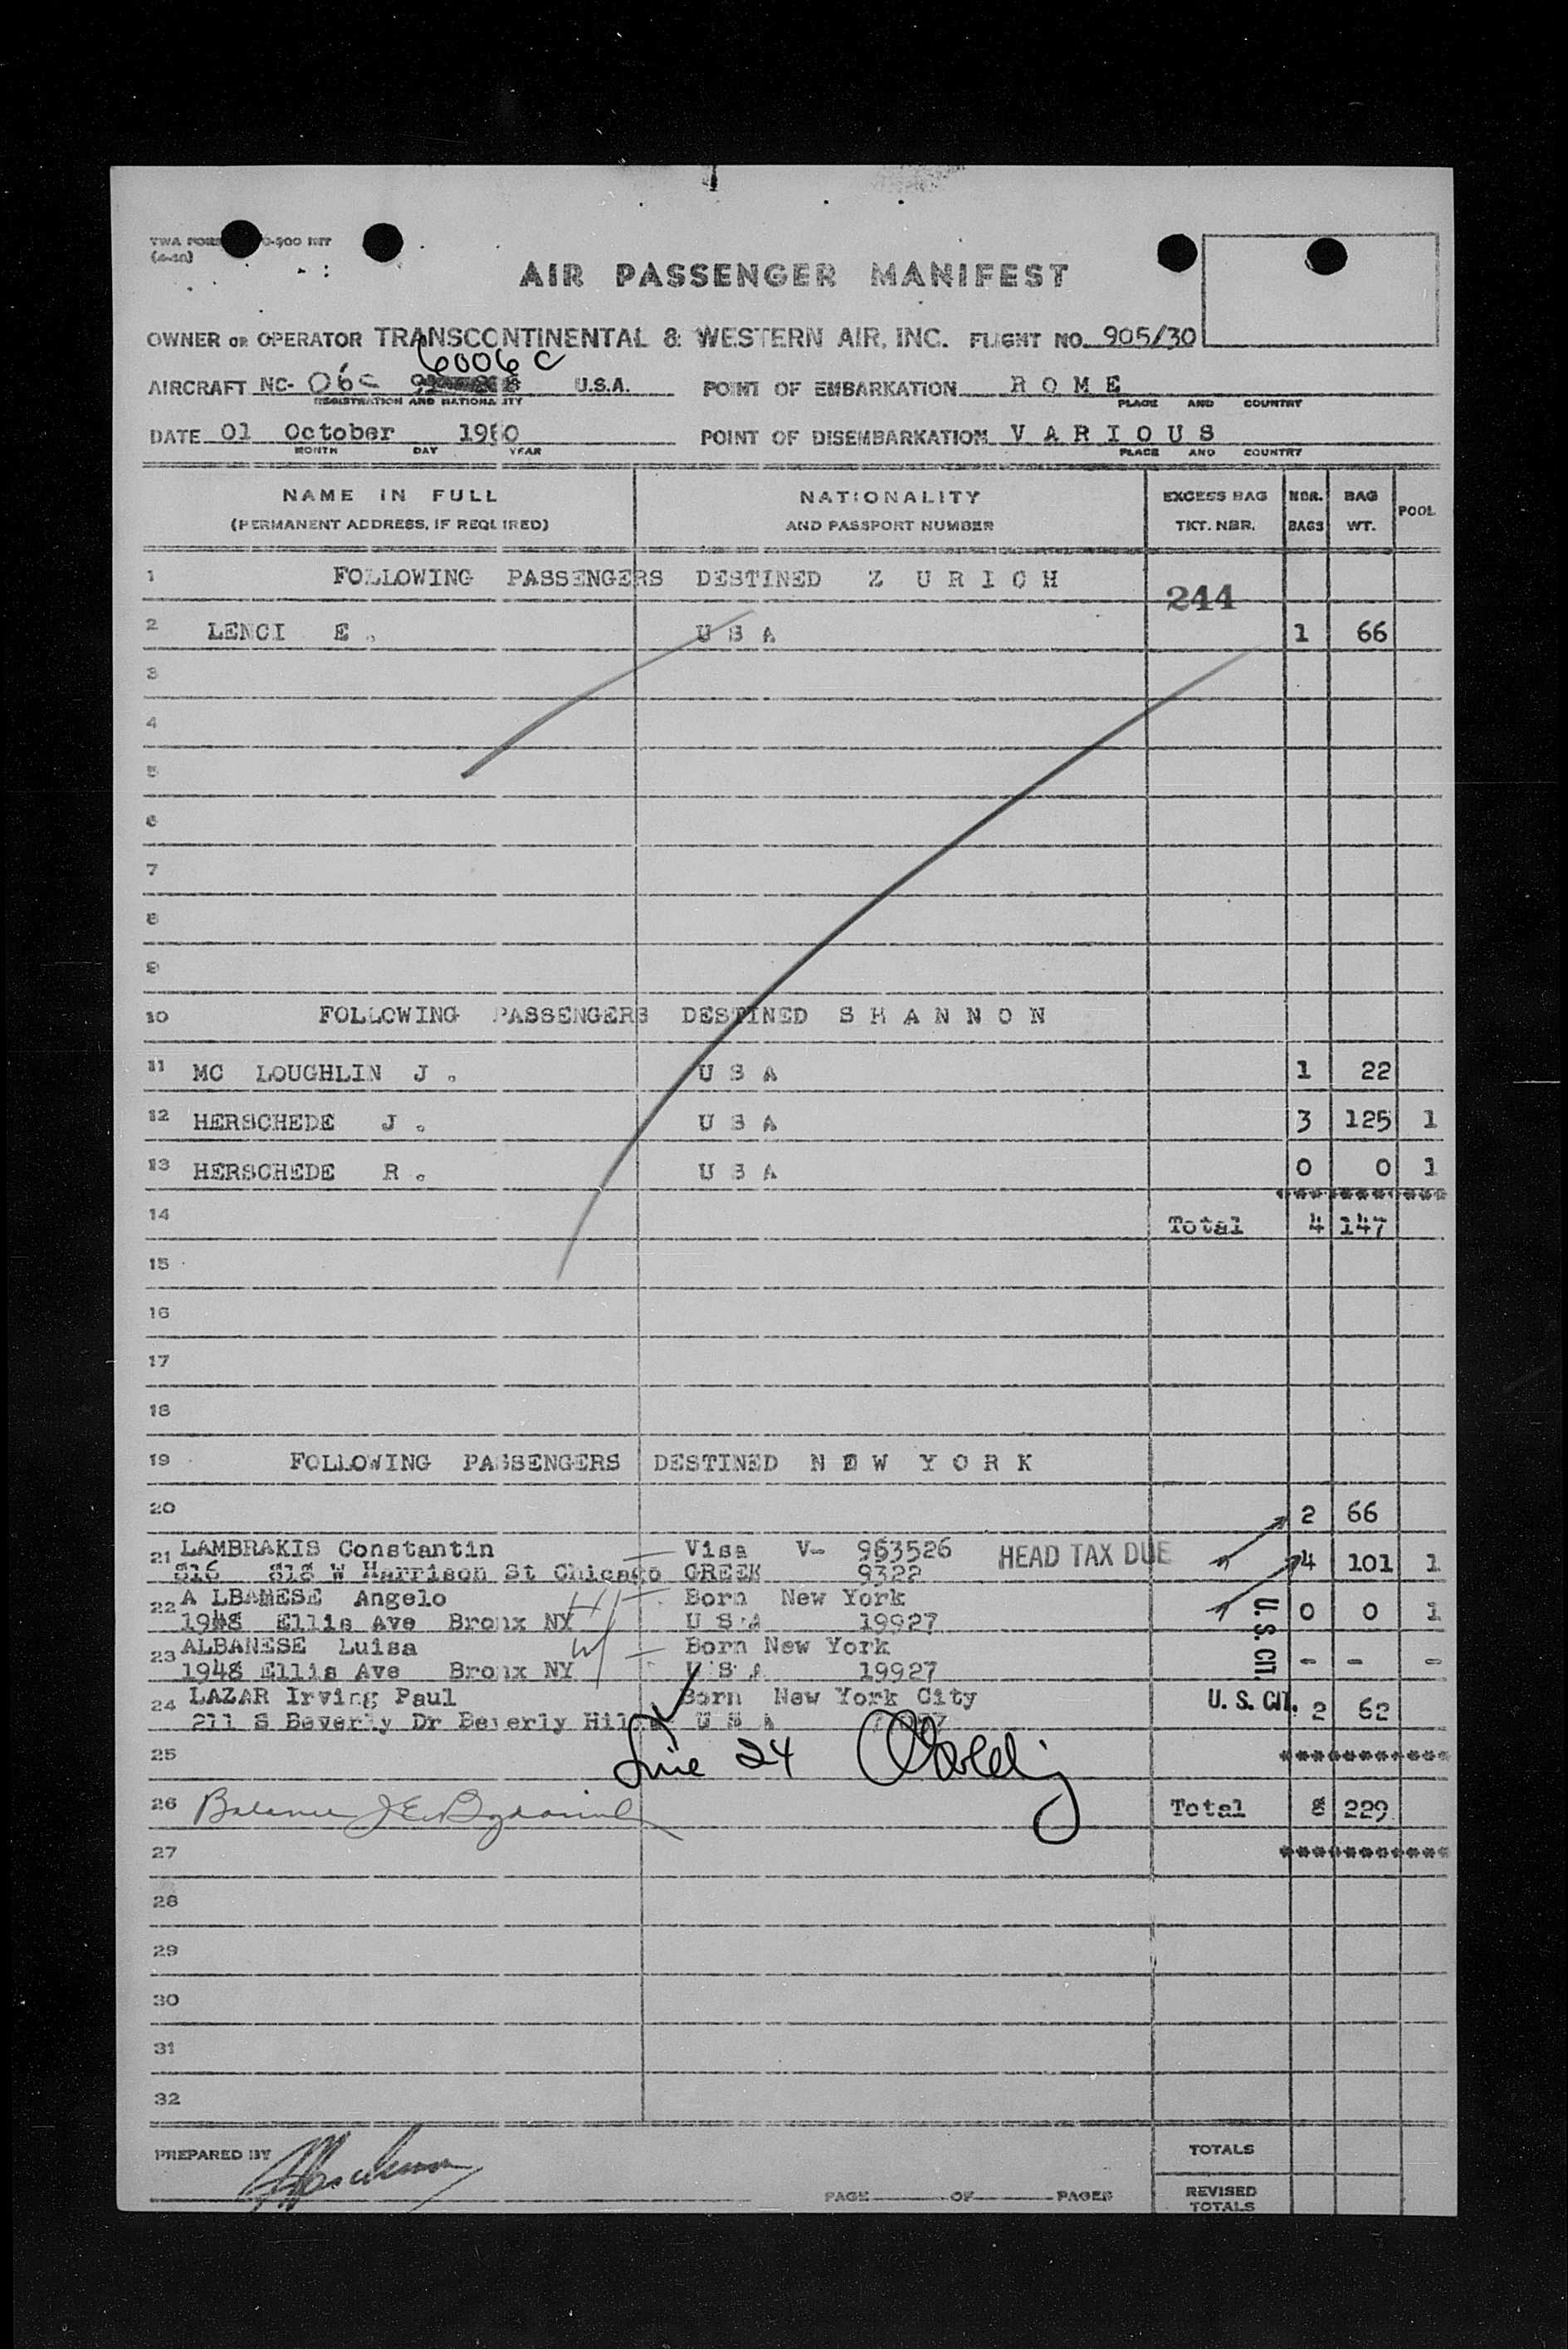 TWA FORM 0-900 INT
AIR PASSENGER MANIFEST
OWNER OR OPERATOR TRANSCONTINENTAL & WESTERN AIR, INC. FLIGHT NO. 905/30
6006C
AIRCRAFT NC- 06C U.S.A. POINT OF EMBARKATION R O M E
REGISTRATION AND NATIONALITY PLACE AND COUNTRY
DATE 01 October 1950 POINT OF DISEMBARKATION V A R I O U S
MONTH DAY YEAR PLACE AND COUNTRY
NAME IN FULL NATIONALITY EXCESS BAG NBR. BAG POOL
(PERMANENT ADDRESS, IF REQUIRED) AND PASSPORT NUMBER TKT. NBR. BAGS WT.
1 FOLLOWING PASSENGERS DESTINED Z U R I C H
244
2 LENCI E. U S A 1 66
3
4
5
6
7
8
9
10 FOLLOWING PASSENGERS DESTINED S H A N N O N
11 MC LOUGHLIN J. U S A 1 22
12 HERSCHEDE J. U S A 3 125 1
13 HERSCHEDE R. U S A 0 0 1
**********
14 Total 4 147
15
16
17
18
19 FOLLOWING PASSENGERS DESTINED N E W Y O R K
20 2 66
21 LAMBRAKIS Constantin Visa V- 963526 HEAD TAX DUE
816 818 W Harrison St Chicago GREEK 9322 4 101 1
22 A LBANESE Angelo Born New York
1948 Ellis Ave Bronx NY U S A 19927 0 0 1
23 ALBANESE Luisa Born New York U.S. CIT.
1948 Ellis Ave Bronx NY U S A 19927 - - -
24 LAZAR Irving Paul Born New York City U. S. CIT. 2 62
211 S Beverly Dr Beverly Hills U S A
25 Line 24 **********
26 Balance Total 8 229
27 **********
28
29
30
31
32
PREPARED BY TOTALS
PAGE OF PAGES REVISED
TOTALS